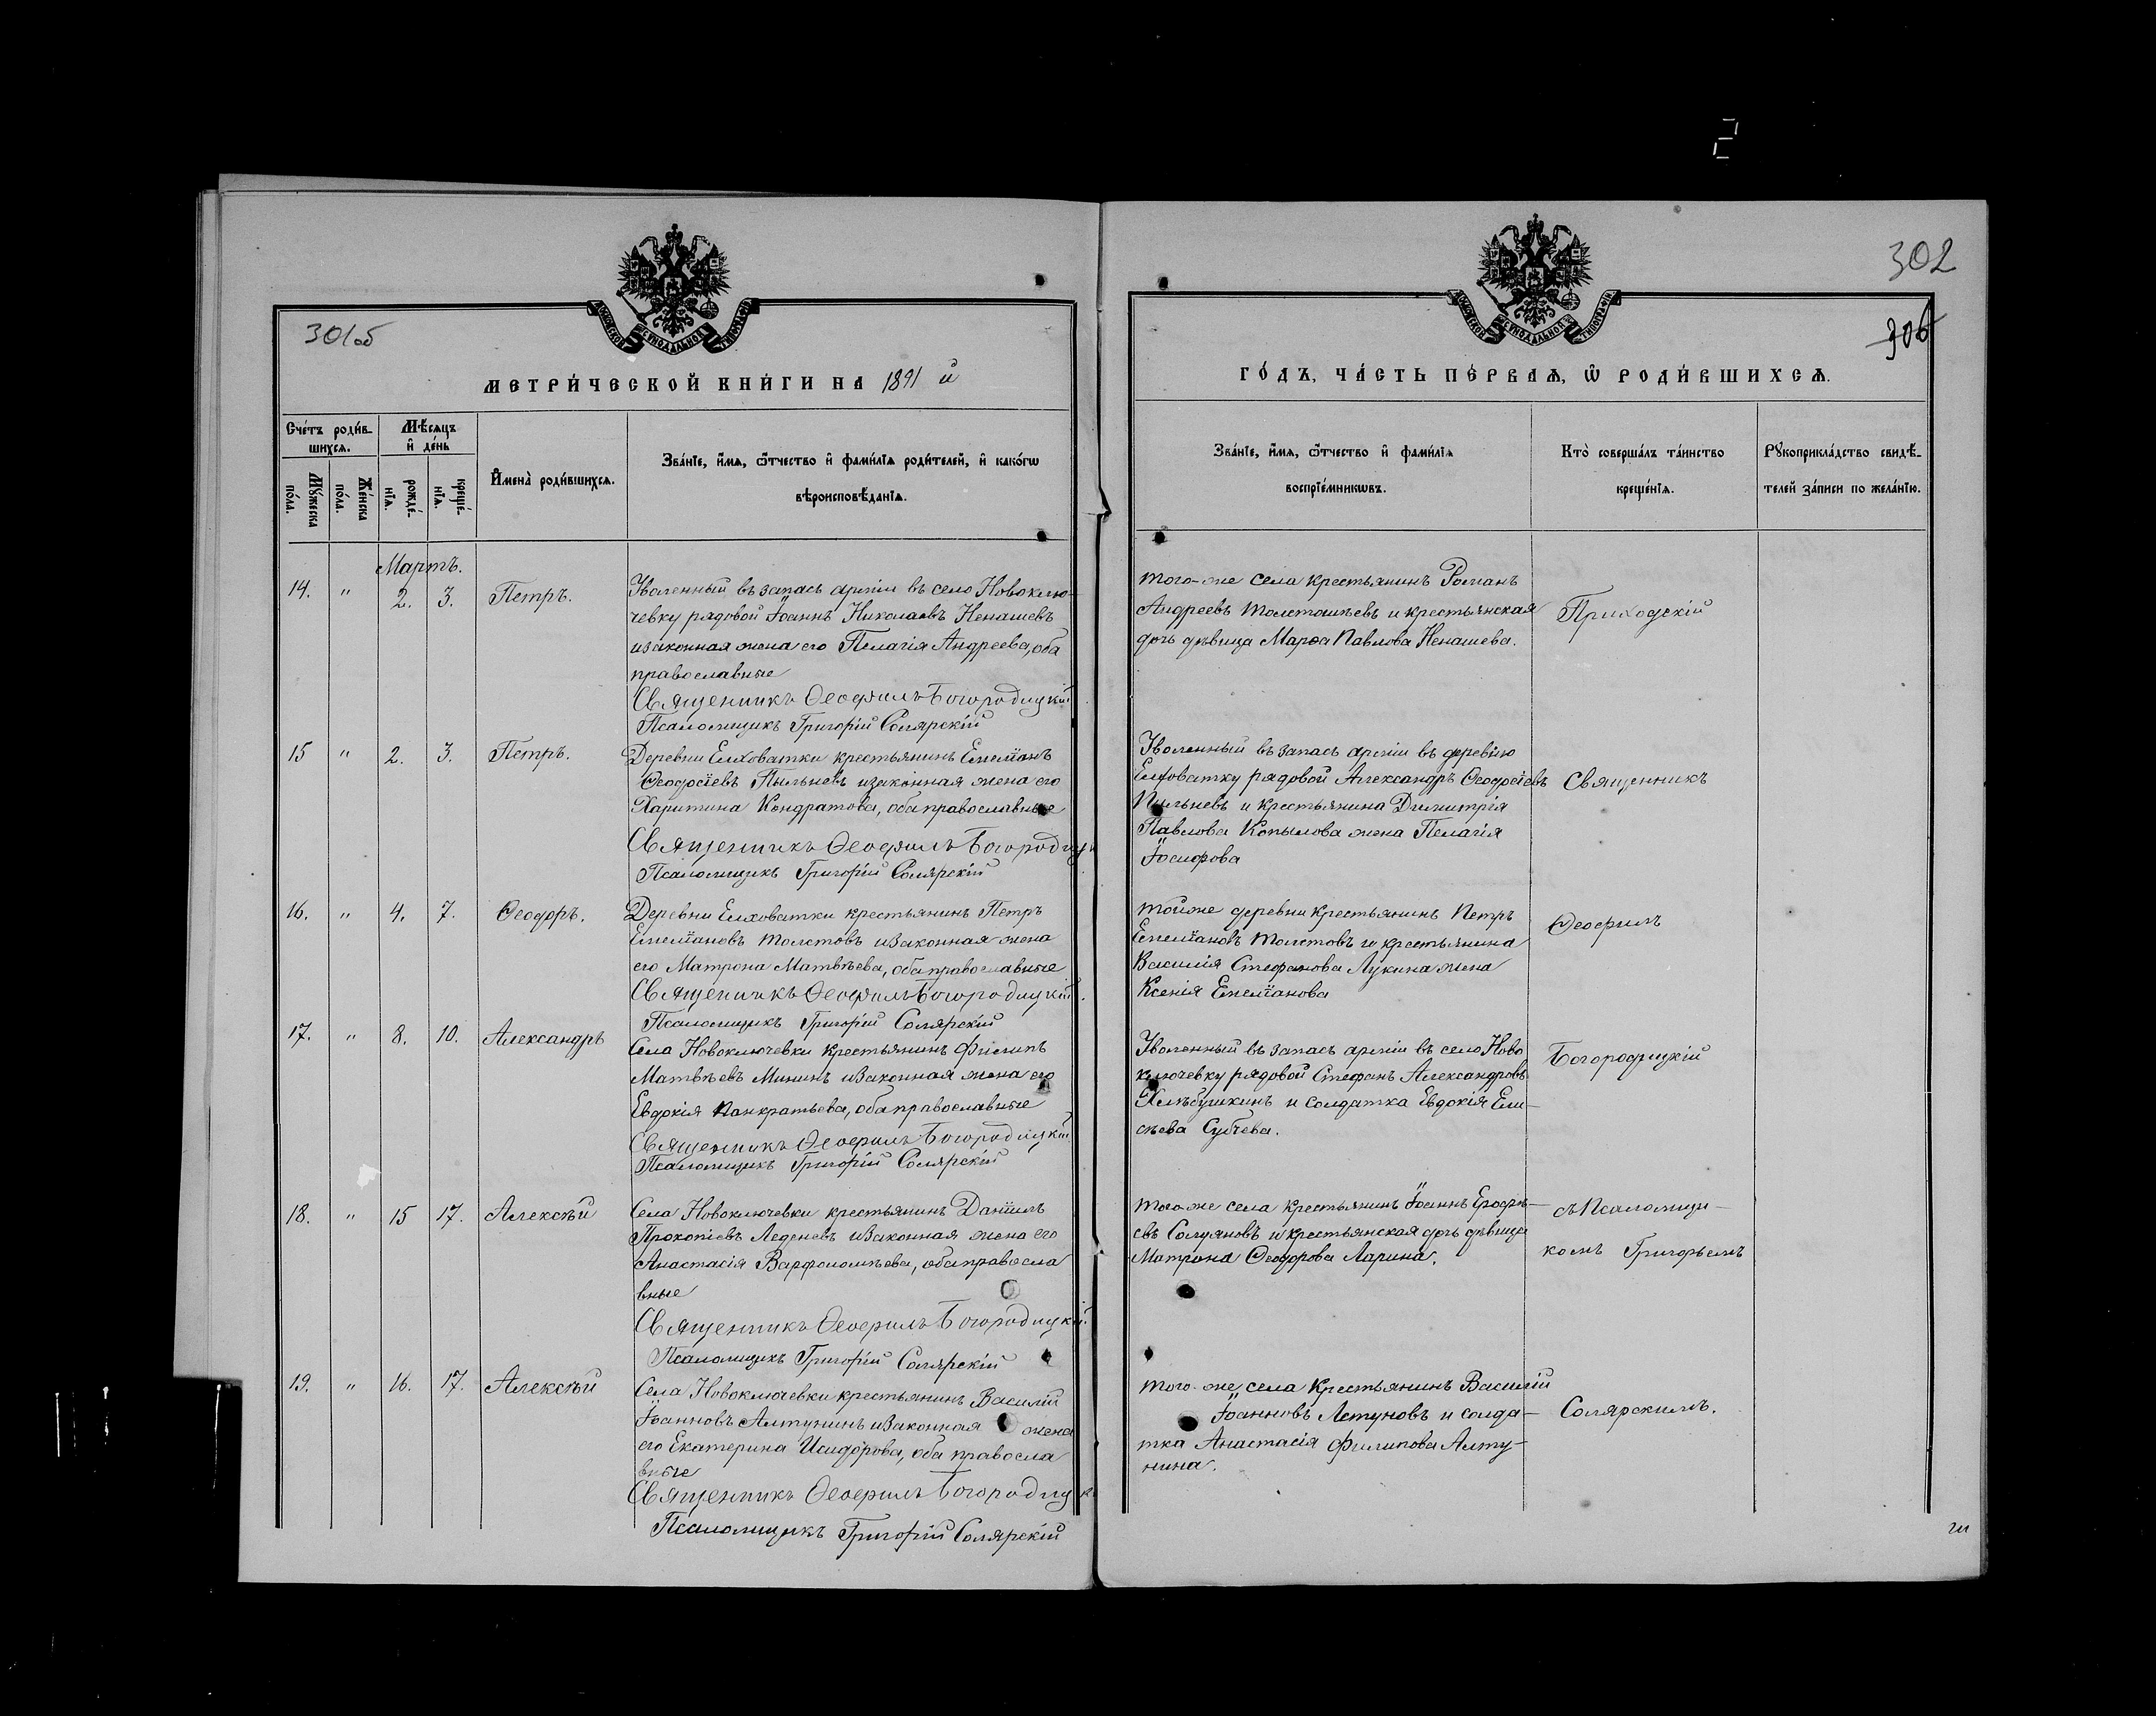 302
306
301об
МЕТРИ́ЧЕСКОЙ КНИ́ГИ НА 1891 й
ГО́ДЪ, ЧА́СТЬ ПЕ́РВАѦ, Ѡ҆ РОДИ́ВШИХСѦ.
Сче́тъ роди́в-
шихсѧ.
Мꙋ́жеска
по́ла.
Же́нска
по́ла.
Мѣ́сѧцъ
и҆ де́нь
рожде́-
нїѧ.
креще́-
нїѧ.
И҆мена̀ роди́вшихсѧ.
Зва́нїе, и҆́мѧ, ѻ҆́тчество и҆ фами́лїѧ роди́телей, и҆ како́гѡ
вѣроисповѣ́данїѧ.
Зва́нїе, и҆́мѧ, ѻ҆́тчество и҆ фами́лїѧ
воспрїе́мникѡвъ.
Кто̀ соверша́лъ та́инство
креще́нїѧ.
Рꙋкоприкла́дство свидѣ́-
телей за́писи по жела́нїю.
Мартъ.
14. " 2. 3. Петръ.
Уволенный въ запасъ арміи въ село Новоклю-
чевку рядовой Іоаннъ Николаевъ Ненашевъ
и законная жена его Пелагія Андреева, оба
православные
Священникъ Ѳеофилъ Богородицкій
Псаломщикъ Григорій Солярскій
того-же села крестьянинъ Романъ
Андреевъ Толстошѣевъ и крестьянская
дочь дѣвица Марѳа Павлова Ненашева.
Приходскій
15 " 2. 3. Петръ.
Деревни Елховатки крестьянинъ Емелїанъ
Ѳеодосїевъ Пыльневъ и законная жена его
Харитина Кондратова, оба православные
Священникъ Ѳеофилъ Богородицк
Псаломщикъ Григорій Солярскій
Уволенный въ запасъ арміи въ деревню
Елховатку рядовой Александръ Ѳеодосїевъ
Пыльневъ и крестьянина Димитрія
Павлова Копылова жена Пелагія
Іосифова
Священникъ
16. " 4. 7. Ѳеодоръ.
Деревни Елховатки крестьянинъ Петръ
Емелїановъ Толстовъ и законная жена
его Матрона Матвѣева, оба православные
Священникъ Ѳеофилъ Богородицкій.
Псаломщикъ Григорій Солярскій
той же деревни крестьянинъ Петръ
Емелїановъ Толстовъ и крестьянина
Василія Стефанова Лукина жена
Ксенія Емелїанова
Ѳеофилъ
17. " 8. 10. Александръ
Села Новоключевки крестьянинъ Филипъ
Матвѣевъ Мининъ и законная жена его
Евдокія Панкратьева, оба православные
Священникъ Ѳеофилъ Богородицкій
Псаломщикъ Григорій Солярскій
Уволенный въ запасъ арміи въ село Ново
ключевку рядовой Стефанъ Александровъ
Хлѣбушкинъ и солдатка Евдокія Ели-
сѣева Субчева.
Богородицкій
18. " 15 17. Алексѣй
Села Новоключевки крестьянинъ Данїилъ
Прокопіевъ Леденевъ и законная жена его
Анастасія Варфоломѣева, оба правосла
вные
Священникъ Ѳеофилъ Богородицкій
Псаломщикъ Григорій Солярскій
того же села крестьянинъ Іоаннъ Ерофѣ-
евъ Солдановъ и крестьянская дочь дѣвица
Матрона Ѳеодорова Ларина.
съ Псаломщи-
комъ Григорьемъ
19. " 16. 17. Алексѣй
Села Новоключевки крестьянинъ Василій
Іоанновъ Алтунинъ и законная жена
его Екатерина Исидорова, оба правосла
вные
Священникъ Ѳеофилъ Богородицк
Псаломщикъ Григорій Солярскій
того-же села крестьянинъ Василій
Іоанновъ Летуновъ и солда-
тка Анастасія Филипова Алту-
нина.
Солярскимъ.